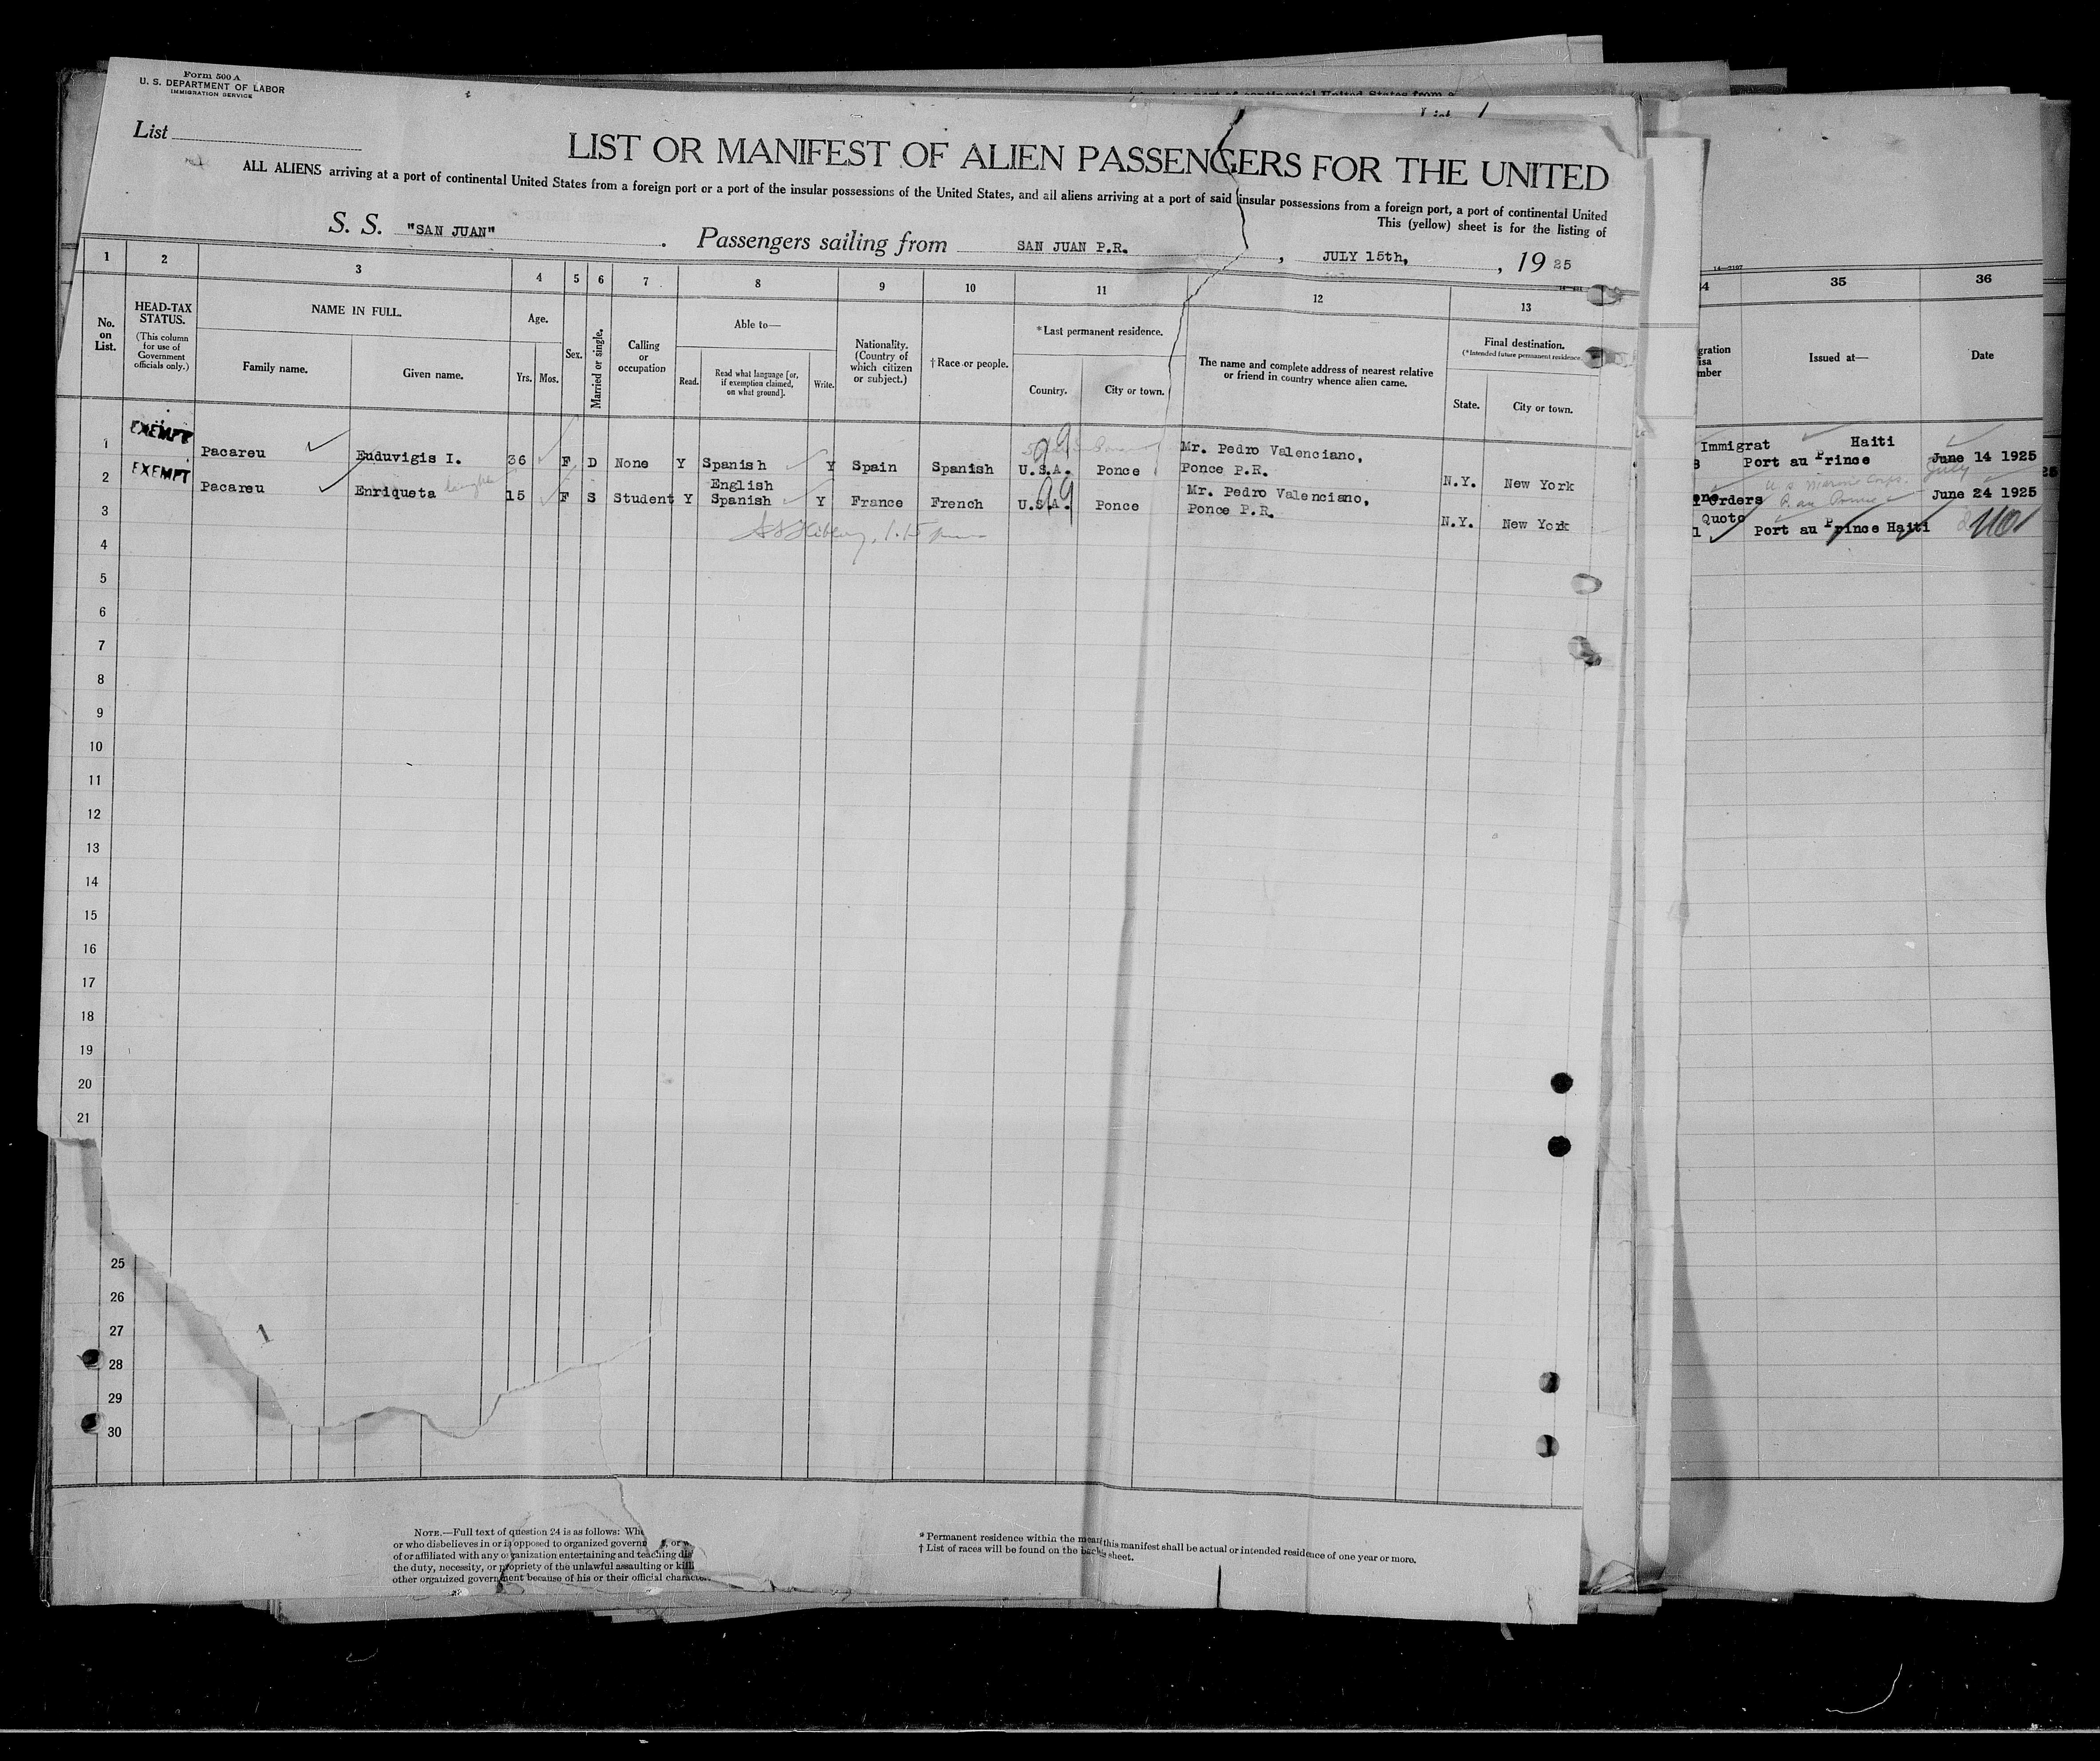 Form 500 A
U. S. DEPARTMENT OF LABOR
IMMIGRATION SERVICE
List
LIST OR MANIFEST OF ALIEN PASSENGERS FOR THE UNITED
ALL ALIENS arriving at a port of continental United States from a foreign port or a port of the insular possessions of the United States, and all aliens arriving at a port of said insular possessions from a foreign port, a port of continental United
This (yellow) sheet is for the listing of
S. S. "SAN JUAN" . Passengers sailing from SAN JUAN P.R. , JULY 15th, , 19 25
1 2 3 4 5 6 7 8 9 10 11 12 13
No. on List.
HEAD-TAX STATUS.
(This column for use of Government officials only.)
NAME IN FULL.
Family name. Given name.
Age.
Yrs. Mos.
Sex.
Married or single.
Calling or occupation
Able to—
Read. Read what language [or, if exemption claimed, on what ground]. Write.
Nationality. (Country of which citizen or subject.)
†Race or people.
*Last permanent residence.
Country. City or town.
The name and complete address of nearest relative or friend in country whence alien came.
Final destination.
(*Intended future permanent residence.)
State. City or town.
1 EXEMPT Pacareu Euduvigis I. 36 F D None Y Spanish Y Spain Spanish U.S.A. Ponce Mr. Pedro Valenciano, Ponce P.R. N.Y. New York
2 EXEMPT Pacareu Enriqueta daughter 15 F S Student Y English Spanish Y France French U.S.A. Ponce Mr. Pedro Valenciano, Ponce P.R. N.Y. New York
3
4
5
6
7
8
9
10
11
12
13
14
15
16
17
18
19
20
21
25
26
27
28
29
30
1
NOTE.—Full text of question 24 is as follows:
or who disbelieves in or is opposed to organized
of or affiliated with any organization entertaining and teaching
the duty, necessity, or propriety of the unlawful assaulting or
other organized government because of his or their official
* Permanent residence within the this manifest shall be actual or intended residence of one year or more.
† List of races will be found on the sheet.
35 36
Issued at— Date
Immigrat Haiti
Port au Prince June 14 1925
July
U S Marine Corps.
Orders June 24 1925
Quoto
Port au Prince Haiti